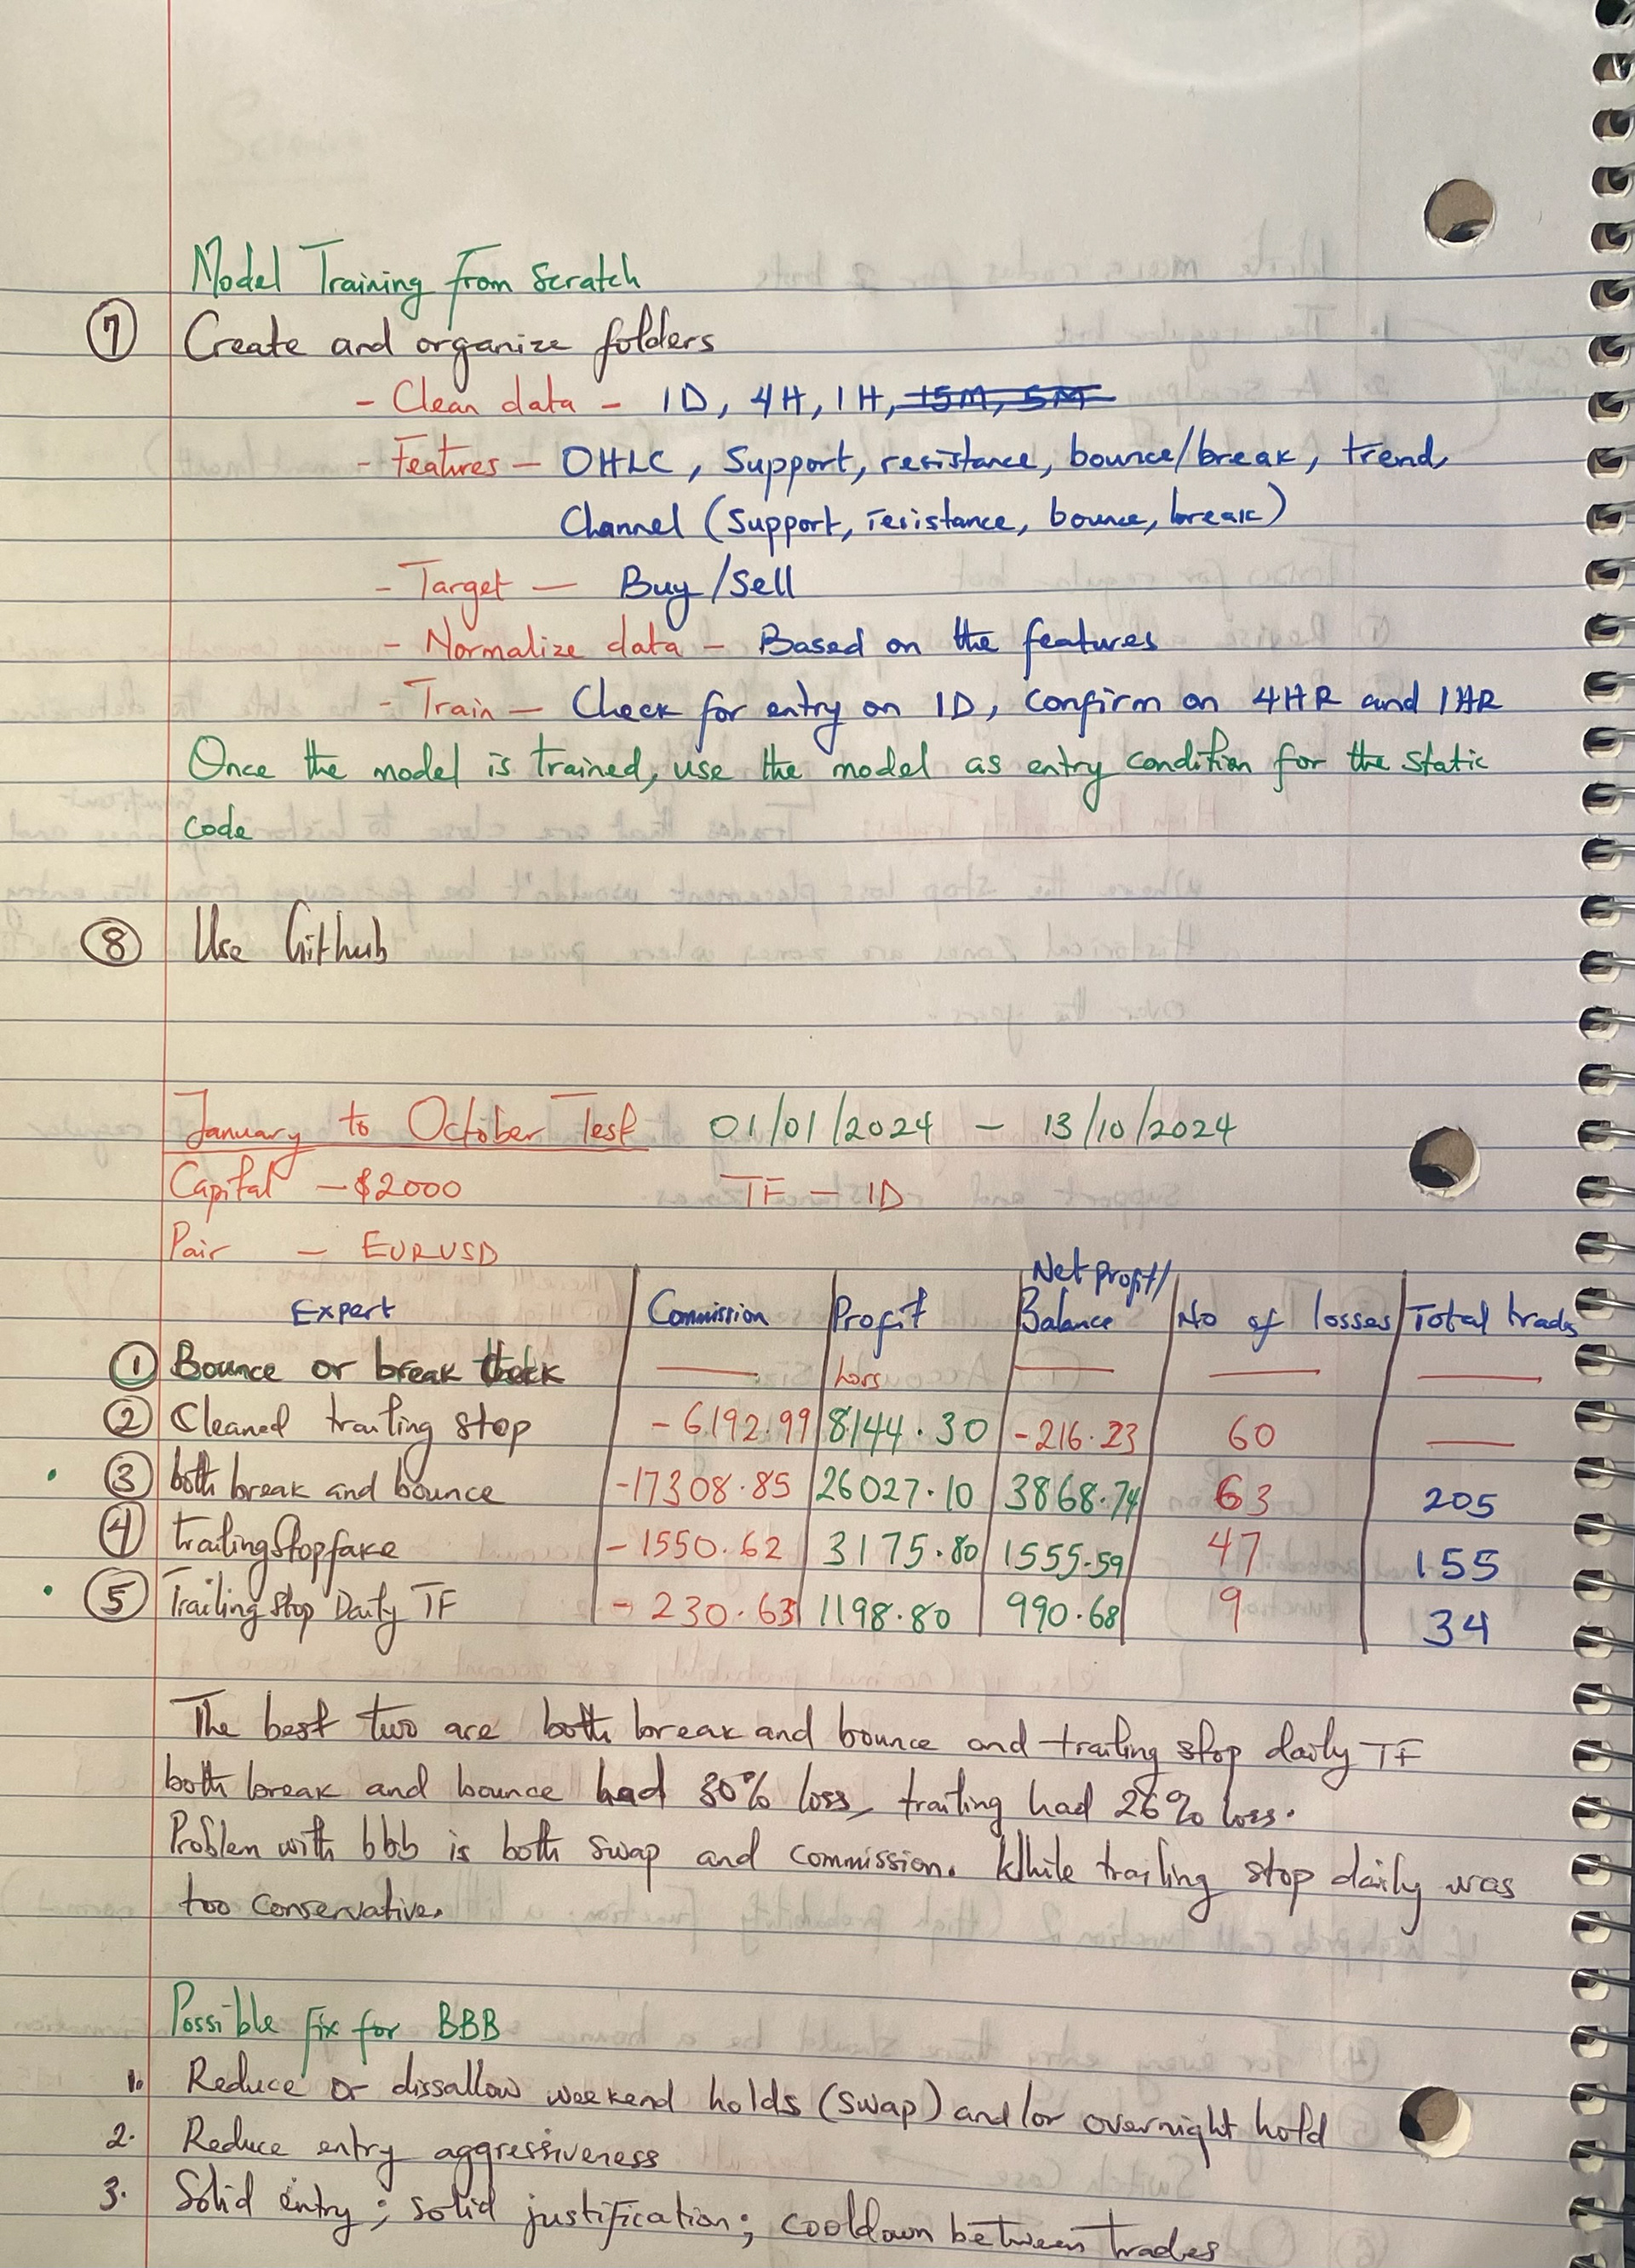 Model Training from scratch
⑦ Create and organize folders
- Clean data - 1D, 4H, 1H, 15M, 5M
- Features - OHLC, Support, resistance, bounce/break, trend,
Channel (Support, resistance, bounce, break)
- Target - Buy/Sell
- Normalize data - Based on the features
- Train - Check for entry on 1D, confirm on 4HR and 1HR
Once the model is trained, use the model as entry condition for the static
code
⑧ Use Github
January to October Test 01/01/2024 - 13/10/2024
Capital - $2000 TF - 1D
Pair - EURUSD
Expert Commission Profit Net profit/Balance No of losses Total trades
① Bounce or break check — Loss — — —
② Cleaned trailing stop -6192.99 8144.30 -216.23 60 —
③ both break and bounce -17308.85 26027.10 3868.74 63 205
④ trailingstopfake -1550.62 3175.80 1555.59 47 155
⑤ Trailing stop Daily TF - 230.63 1198.80 990.68 9 34
The best two are both break and bounce and trailing stop daily TF
both break and bounce had 30% loss, trailing had 26% loss.
Problem with bbb is both swap and commission. While trailing stop daily was
too conservative.
Possible fix for BBB
1. Reduce or dissallow weekend holds (swap) and/or overnight hold
2. Reduce entry aggressiveness
3. Solid entry; solid justification; cooldown between trades